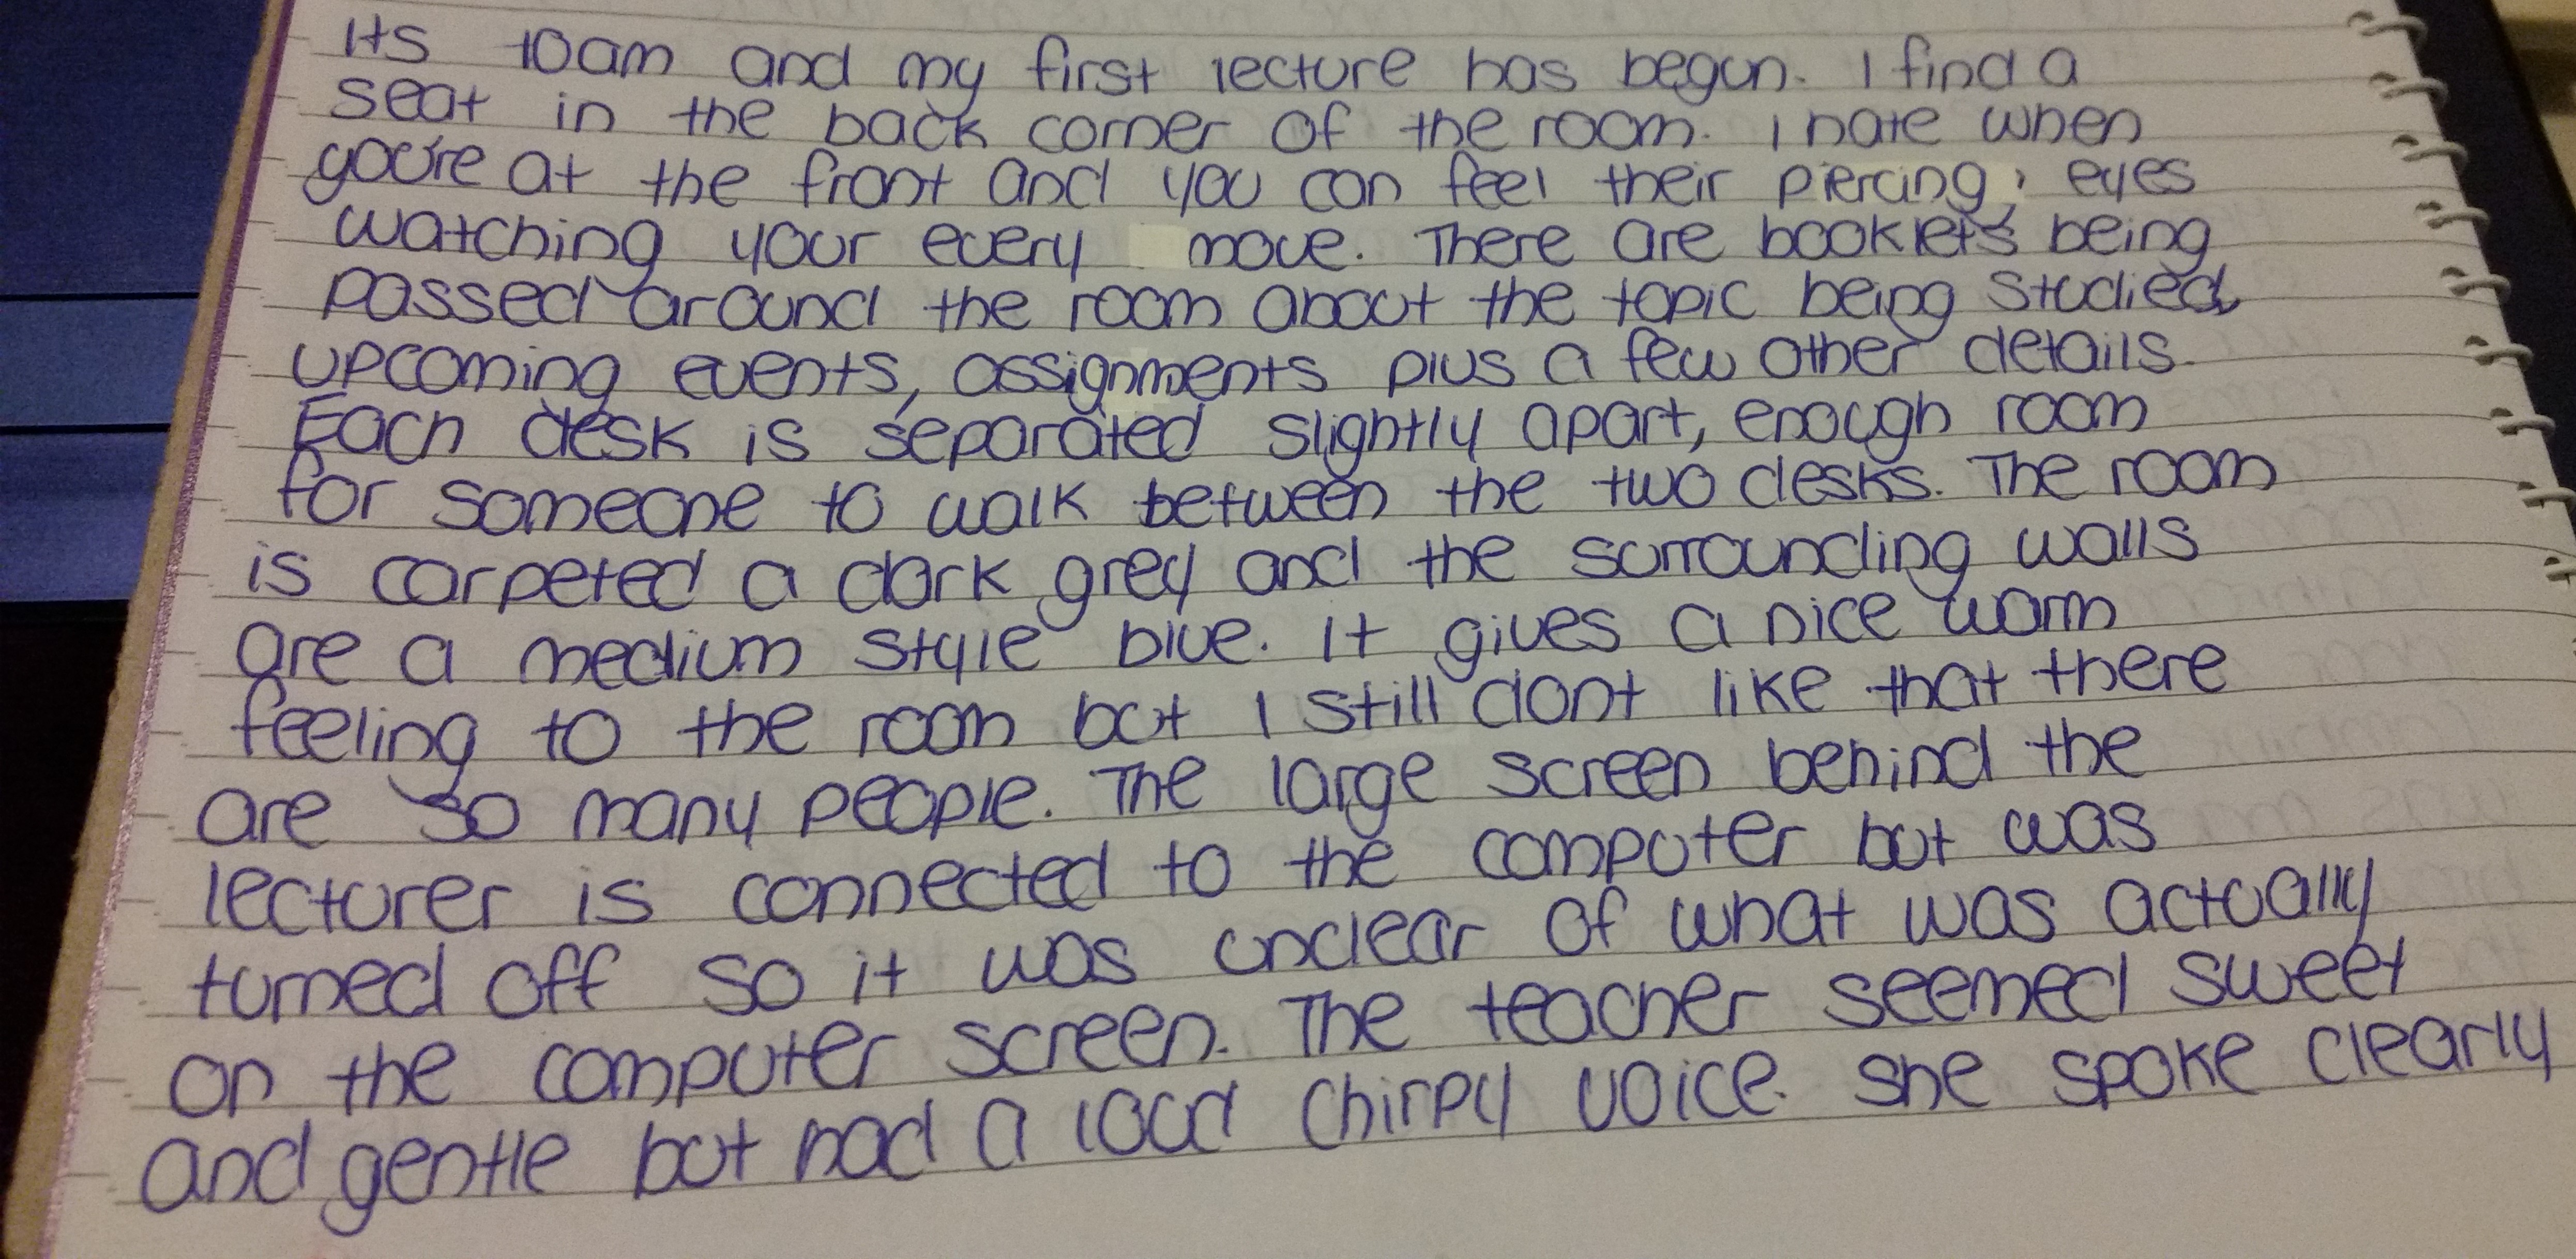 Its 10am and my first lecture has begun. I find a
seat in the back corner of the room. I hate when
you're at the front and you can feel their piercing, eyes
watching your every move. There are booklets being
passed around the room about the topic being studied,
upcoming events, assignments plus a few other details.
Each desk is separated slightly apart, enough room
for someone to walk between the two desks. The room
is carpeted a dark grey and the surrounding walls
are a medium style blue. It gives a nice warm
feeling to the room but I still dont like that there
are so many people. The large screen behind the
lecturer is connected to the computer but was
turned off so it was unclear of what was actually
on the computer screen. The teacher seemed sweet
and gentle but had a loud chirpy voice. She spoke clearly